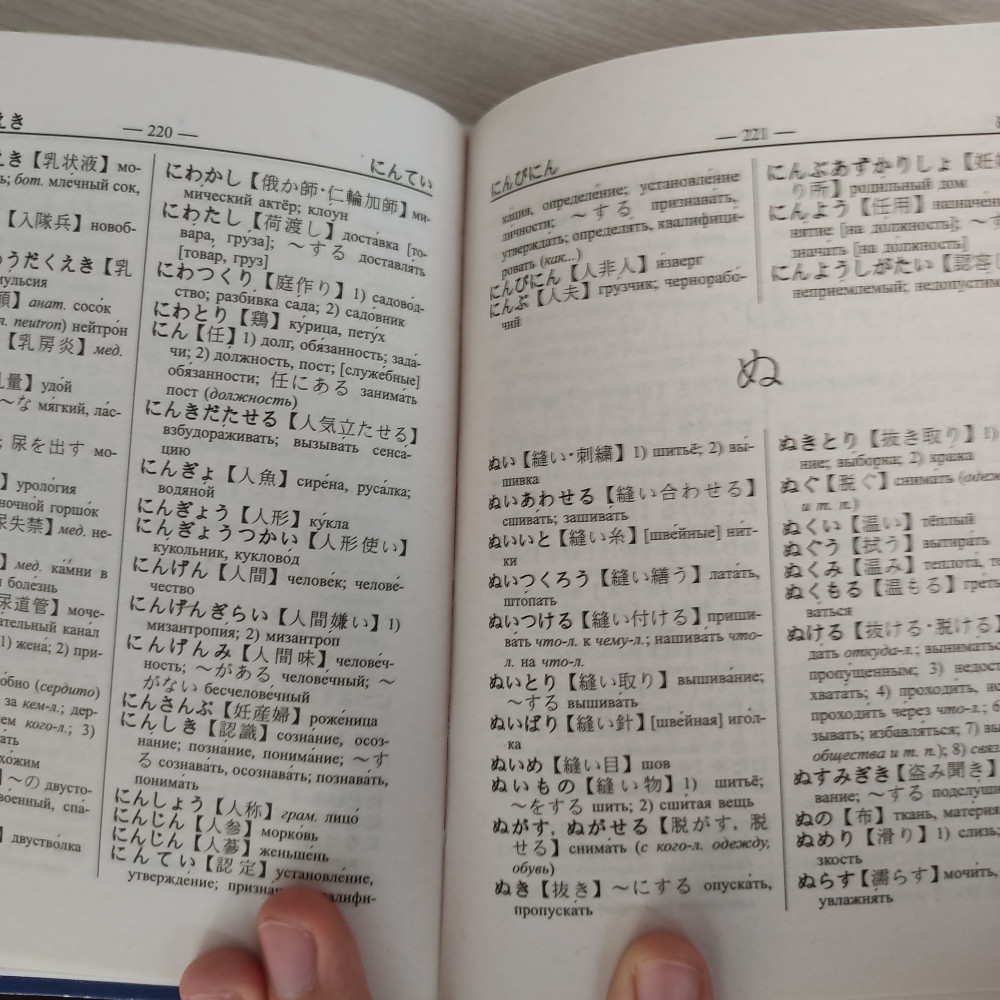 えき
— 220 —
にんてい
えき【乳状液】 мо-
ь; бот. мле́чный сок,
【入隊兵】 новоб-
うだくえき【乳
мульсия
анат. сосо́к
neutron) нейтро́н
【乳房炎】 мед.
量】 удо́й
〜な мя́гкий, ла́с-
; 尿を出す мо-
】 уроло́гия
ночно́й горшо́к
尿失禁】 мед. не-
】 мед. ка́мни в
боле́знь
尿道管】 моче-
ательный кана́л
1) жена́; 2) при-
обно (сердито)
за кем-л.; дер-
ем кого-л.; 3)
ать
хо́жим
】〜の двусто-
вое́нный, спа-
】 двуство́лка
にわかし【俄か師·仁輪加師】 ми-
ми́ческий актёр; кло́ун
にわたし【荷渡し】 доста́вка [то-
ва́ра, гру́за]; 〜する доставля́ть
[това́р, груз]
にわつくり【庭作り】 1) садово́д-
ство; разби́вка са́да; 2) садо́вник
にわとり【鶏】 ку́рица, пету́х
にん【任】 1) долг, обя́занность; зада́-
чи; 2) до́лжность, пост; [служе́бные]
обя́занности; 任にある занима́ть
пост (должность)
にんきだたせる【人気立たせる】
взбудора́живать; вызыва́ть сенса́-
цию
にんぎょ【人魚】 сире́на, руса́лка;
водяно́й
にんぎょう【人形】 ку́кла
にんぎょうつかい【人形使い】
ку́кольник, кукловод
にんげん【人間】 челове́к; челове́-
чество
にんげんぎらい【人間嫌い】 1)
мизантро́пия; 2) мизантро́п
にんげんみ【人間味】 челове́ч-
ность; 〜がある челове́чный; 〜
がない бесчелове́чный
にんさんぷ【妊産婦】 роже́ница
にんしき【認識】 созна́ние, осоз-
на́ние; позна́ние, понима́ние; 〜す
る сознава́ть, осознава́ть; познава́ть,
понима́ть
にんしょう【人称】 грам. лицо́
にんじん【人参】 морко́вь
にんじん【人蔘】 женьше́нь
にんてい【認定】 установле́ние,
утвержде́ние; призна квалифи-
— 221 —
にんぴにん
ка́ция, определе́ние; установле́ние
ли́чности; 〜する признава́ть,
утвержда́ть; определя́ть, квалифици́-
ровать (как...)
にんぴにん【人非人】 и́зверг
にんぷ【人夫】 гру́зчик; чернорабо́-
чий
にんぶあずかりしょ【妊
り所】 роди́льный дом
にんよう【任用】 назначен
ня́тие [на до́лжность]; 〜す
знача́ть [на до́лжность]
にんようしがたい【認容
неприе́млемый; недопусти́м
ぬ
ぬい【縫い·刺繍】 1) шитьё; 2) вы́-
шивка
ぬいあわせる【縫い合わせる】
сшива́ть; зашива́ть
ぬいいと【縫い糸】 [шве́йные] ни́т-
ки
ぬいつくろう【縫い繕う】 лата́ть,
што́пать
ぬいつける【縫い付ける】 приши-
ва́ть что-л. к чему-л.; нашива́ть что-
л. на что-л.
ぬいとり【縫い取り】 вышива́ние;
〜する вышива́ть
ぬいばり【縫い針】 [шве́йная] иго́л-
ка
ぬいめ【縫い目】 шов
ぬいもの【縫い物】 1) шитьё;
〜をする шить; 2) сши́тая вещь
ぬがす, ぬがせる【脱がす, 脱
せる】 снима́ть (с кого-л. одежду,
обувь)
ぬき【抜き】 〜にする опуска́ть,
пропуска́ть
ぬきとり【抜き取り】 1)
ние; вы́борка; 2) кра́жа
ぬぐ【脱ぐ】 снима́ть (одеж
и т. п.)
ぬくい【温い】 тёплый
ぬぐう【拭う】 вытира́ть
ぬくみ【温み】 теплота́, те
ぬくもる【温もる】 греть
ва́ться
ぬける【抜ける·脱ける】
да́ть откуда-л.; вынима́ть
пропу́щенным; 3) недост
хвата́ть; 4) проходи́ть, ис
проходи́ть че́рез что-л.; 6
зывать; избавля́ться; 7) вы
общества и т. п.); 8) связ
ぬすみぎき【盗み聞き】
вание; 〜する подслу́ши
ぬの【布】 ткань, мате́рия
ぬめり【滑り】 1) слизь;
зкость
ぬらす【濡らす】 мочи́ть,
увлажня́ть